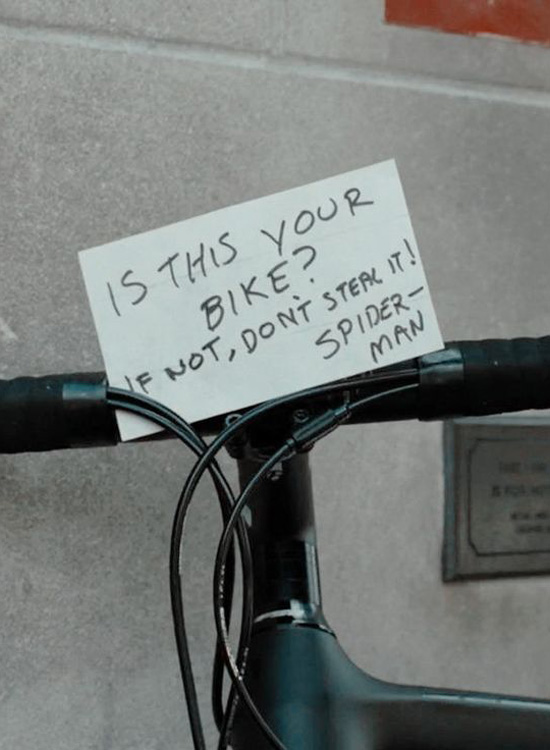 IS THIS YOUR
BIKE?
IF NOT, DON'T STEAL IT!
SPIDER-
MAN